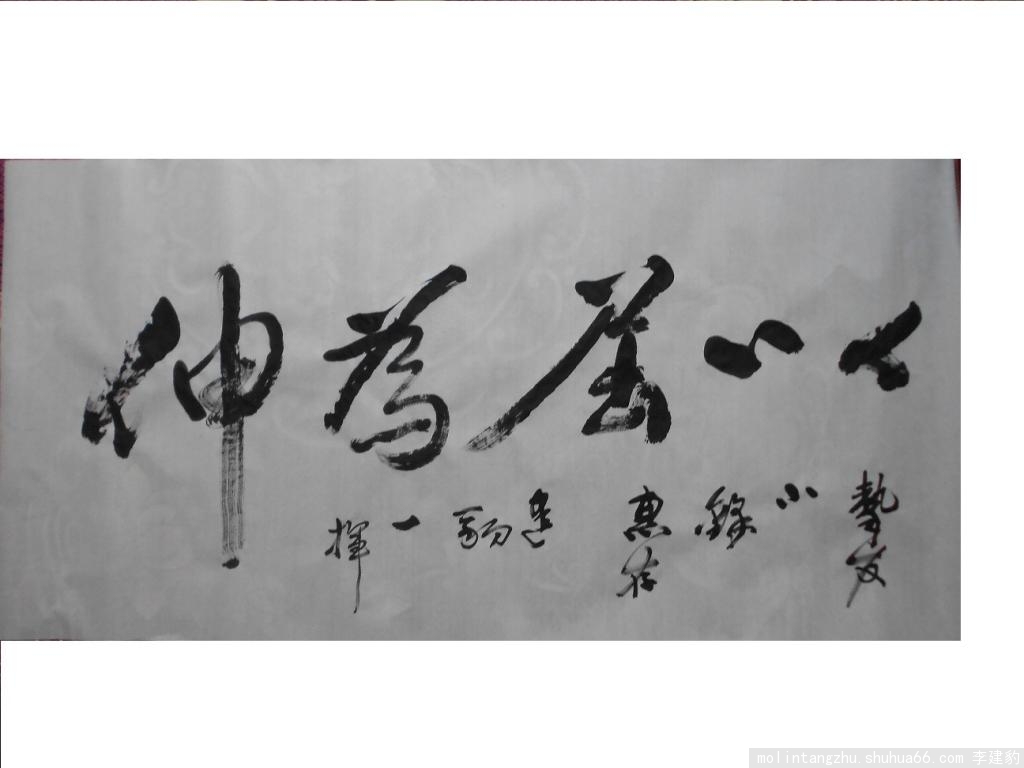 以屈為伸
摯友
小
惠存
一揮
molintangzhu.shuhua66.com 李建豹